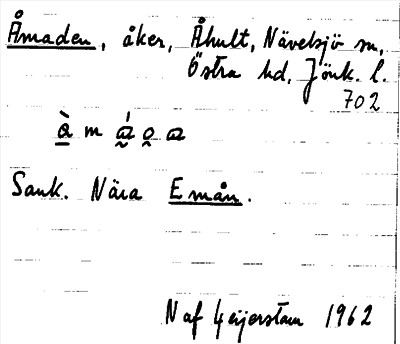 Åmaden, åker, Åhult, Nävelsjö sn,
Östra hd, Jönk. l.
702
Sank. Nära Emån.
N af Geijerstam 1962